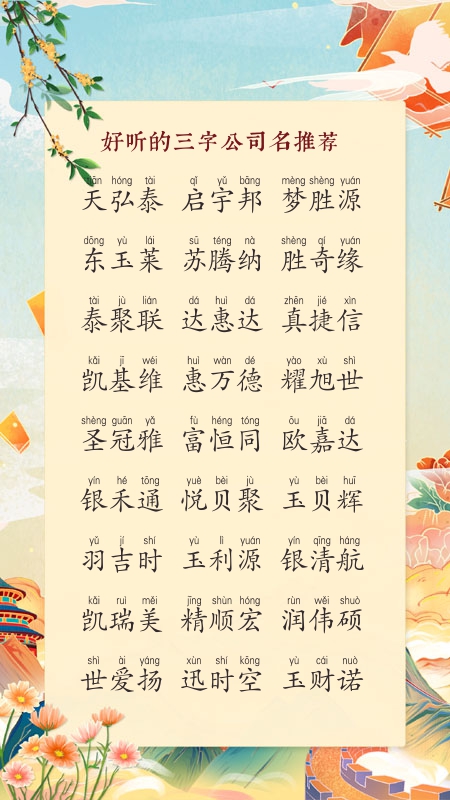 好听的三字公司名推荐
tiān hóng tài qǐ yǔ bāng mèng shèng yuán
天弘泰 启宇邦 梦胜源
dōng yù lái sū téng nà shèng qí yuán
东玉莱 苏腾纳 胜奇缘
tài jù lián dá huì dá zhēn jié xìn
泰聚联 达惠达 真捷信
kǎi jī wéi huì wàn dé yào xù shì
凯基维 惠万德 耀旭世
shèng guān yǎ fù héng tóng ōu jiā dá
圣冠雅 富恒同 欧嘉达
yín hé tōng yuè bèi jù yù bèi huī
银禾通 悦贝聚 玉贝辉
yǔ jí shí yù lì yuán yín qīng háng
羽吉时 玉利源 银清航
kǎi ruì měi jīng shùn hóng rùn wěi shuò
凯瑞美 精顺宏 润伟硕
shì ài yáng xùn shí kōng yù cái nuò
世爱扬 迅时空 玉财诺